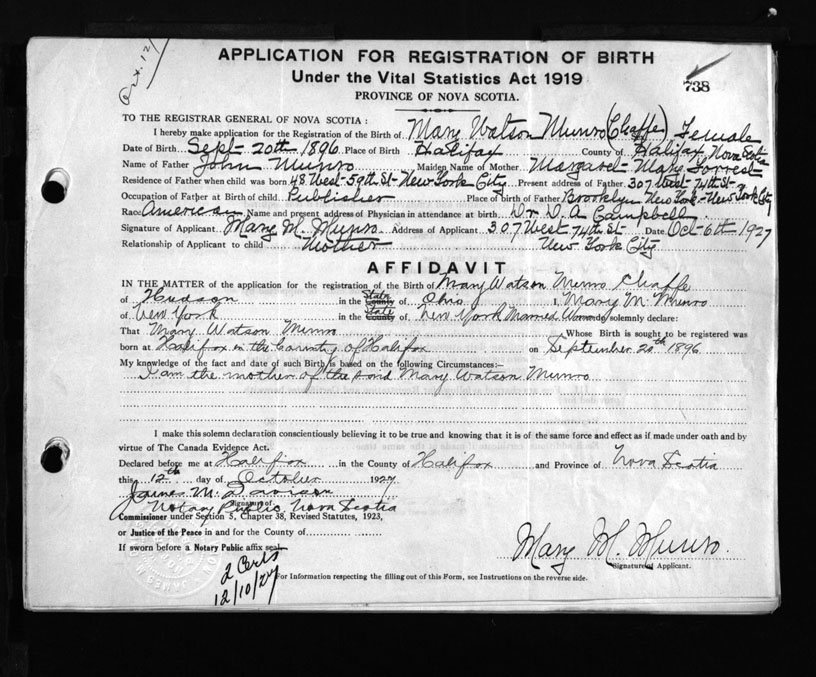 Oct. 12/
APPLICATION FOR REGISTRATION OF BIRTH
Under the Vital Statistics Act 1919
738
PROVINCE OF NOVA SCOTIA.
TO THE REGISTRAR GENERAL OF NOVA SCOTIA :
I hereby make application for the Registration of the Birth of Mary Watson Munro (Chaffe) Female
Date of Birth Sept 20th 1896 Place of Birth Halifax County of Halifax, Nova Scotia
Name of Father John Munro Maiden Name of Mother Margaret Mary Forrest
Residence of Father when child was born 48 West-59th St-New York City Present address of Father 307 West-74th St-New York City
Occupation of Father at Birth of child Publisher Place of birth of Father Brooklyn New York
Race American Name and present address of Physician in attendance at birth Dr D. A. Campbell
Signature of Applicant Mary M. Munro Address of Applicant 307 West 74th St Date Oct-6th 1927
Relationship of Applicant to child Mother New York City
AFFIDAVIT
IN THE MATTER of the application for the registration of the Birth of Mary Watson Munro Chaffe
of Hudson in the County State of Ohio I, Mary M. Munro
of New York in the County State of New York Married Woman do solemnly declare:
That Mary Watson Munro Whose Birth is sought to be registered was
born at Halifax in the County of Halifax on September 20th 1896
My knowledge of the fact and date of such Birth is based on the following Circumstances:—
I am the mother of the said Mary Watson Munro
I make this solemn declaration conscientiously believing it to be true and knowing that it is of the same force and effect as if made under oath and by
virtue of The Canada Evidence Act.
Declared before me at Halifax in the County of Halifax and Province of Nova Scotia
this 12th day of October 1927
James M.
Signature of
Notary Public Nova Scotia
Commissioner under Section 5, Chapter 38, Revised Statutes, 1923,
or Justice of the Peace in and for the County of
If sworn before a Notary Public affix seal
Mary M. Munro.
Signature of Applicant.
2 Certs
12/10/27
For Information respecting the filling out of this Form, see Instructions on the reverse side.